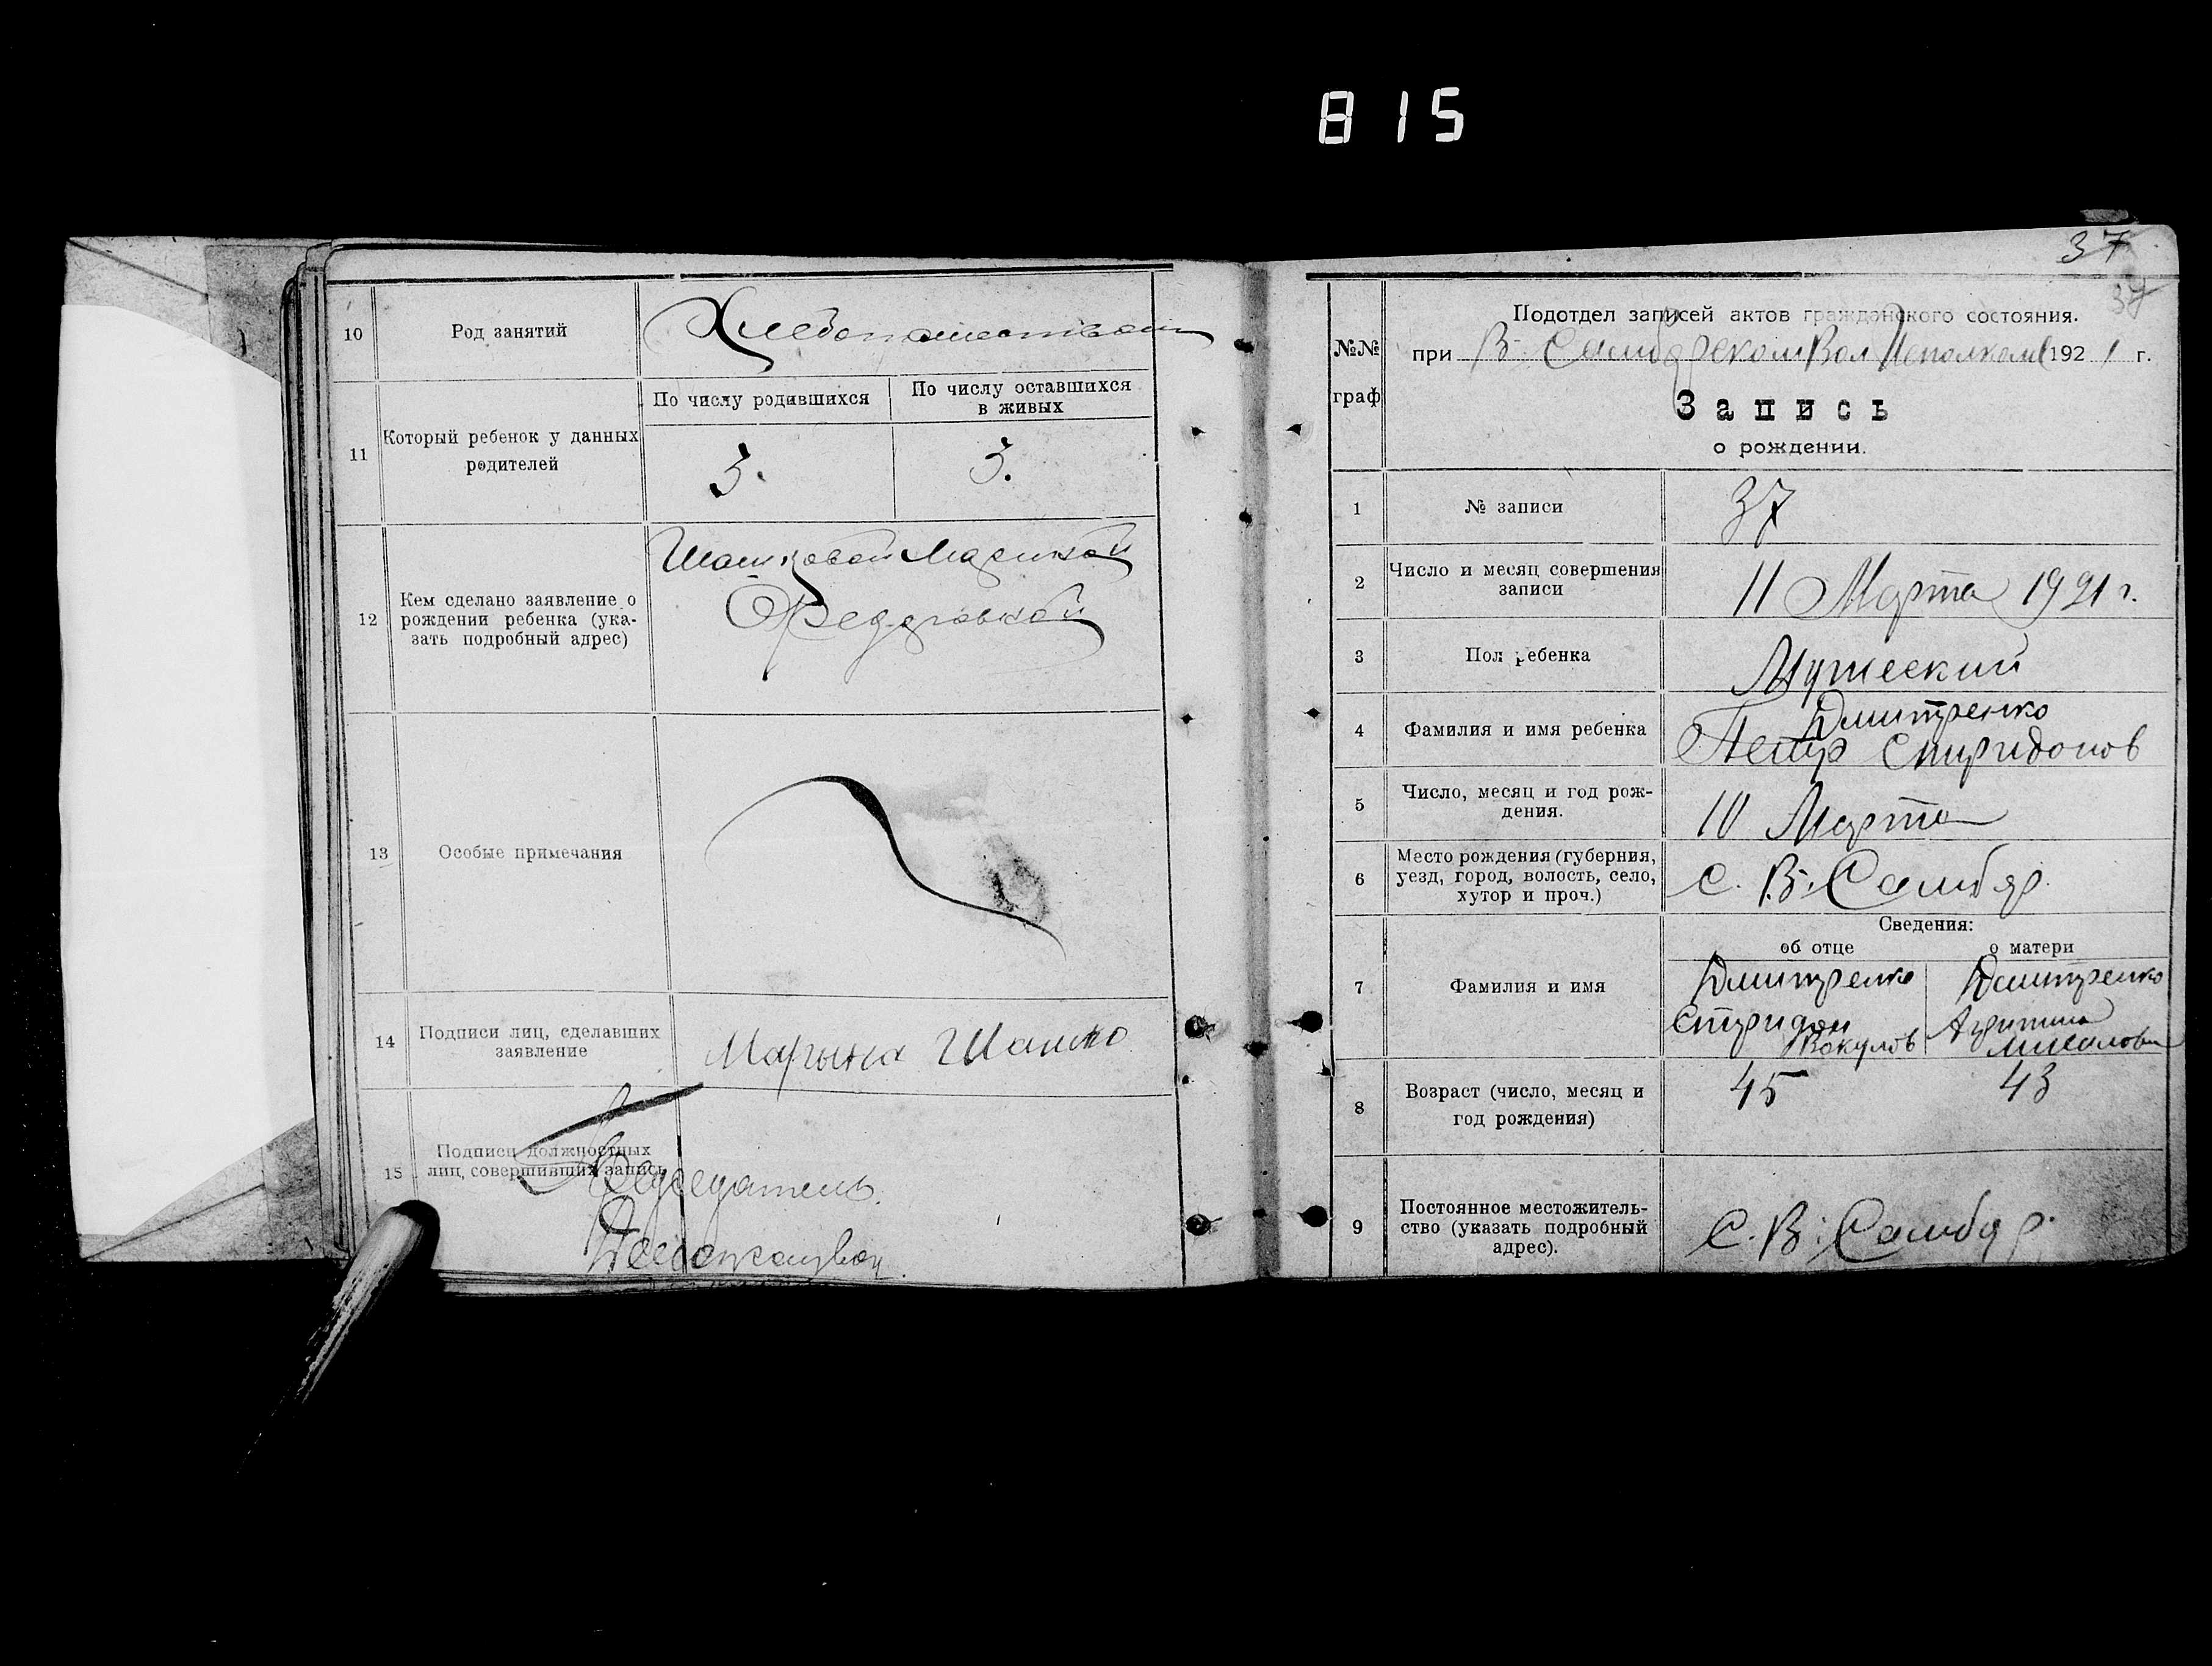 815
10
Род занятий
Хлебопашеством
11
Который ребенок у данных
родителей
По числу родившихся
По числу оставшихся
в живых
3.
3.
12
Кем сделано заявление о
рождении ребенка (ука-
зать подробный адрес)
Марикой
Федоровкой
13
Особые примечания
14
Подписи лиц, сделавших
заявление
Марына
15
Подписи должностных
лиц, совершивших запись
Председатель
37
37
№№
граф
Подотдел записей актов гражданского состояния.
при В. Самбекском Вол Исполкоме 1921 г.
Запись
о рождении.
1
№ записи
37
2
Число и месяц совершения
записи
11 Марта 1921 г.
3
Пол ребенка
Мужеский
4
Фамилия и имя ребенка
Дмитренко
Петр Спиридонов
5
Число, месяц и год рож-
дения.
10 Марта
6
Место рождения (губерния,
уезд, город, волость, село,
хутор и проч.)
С. В.
Сведения:
об отце
о матери
7
Фамилия и имя
Дмитренко
Спиридон
Вакулов
Дмитренко
8
Возраст (число, месяц и
год рождения)
45
43
9
Постоянное местожитель-
ство (указать подробный
адрес).
С. В.